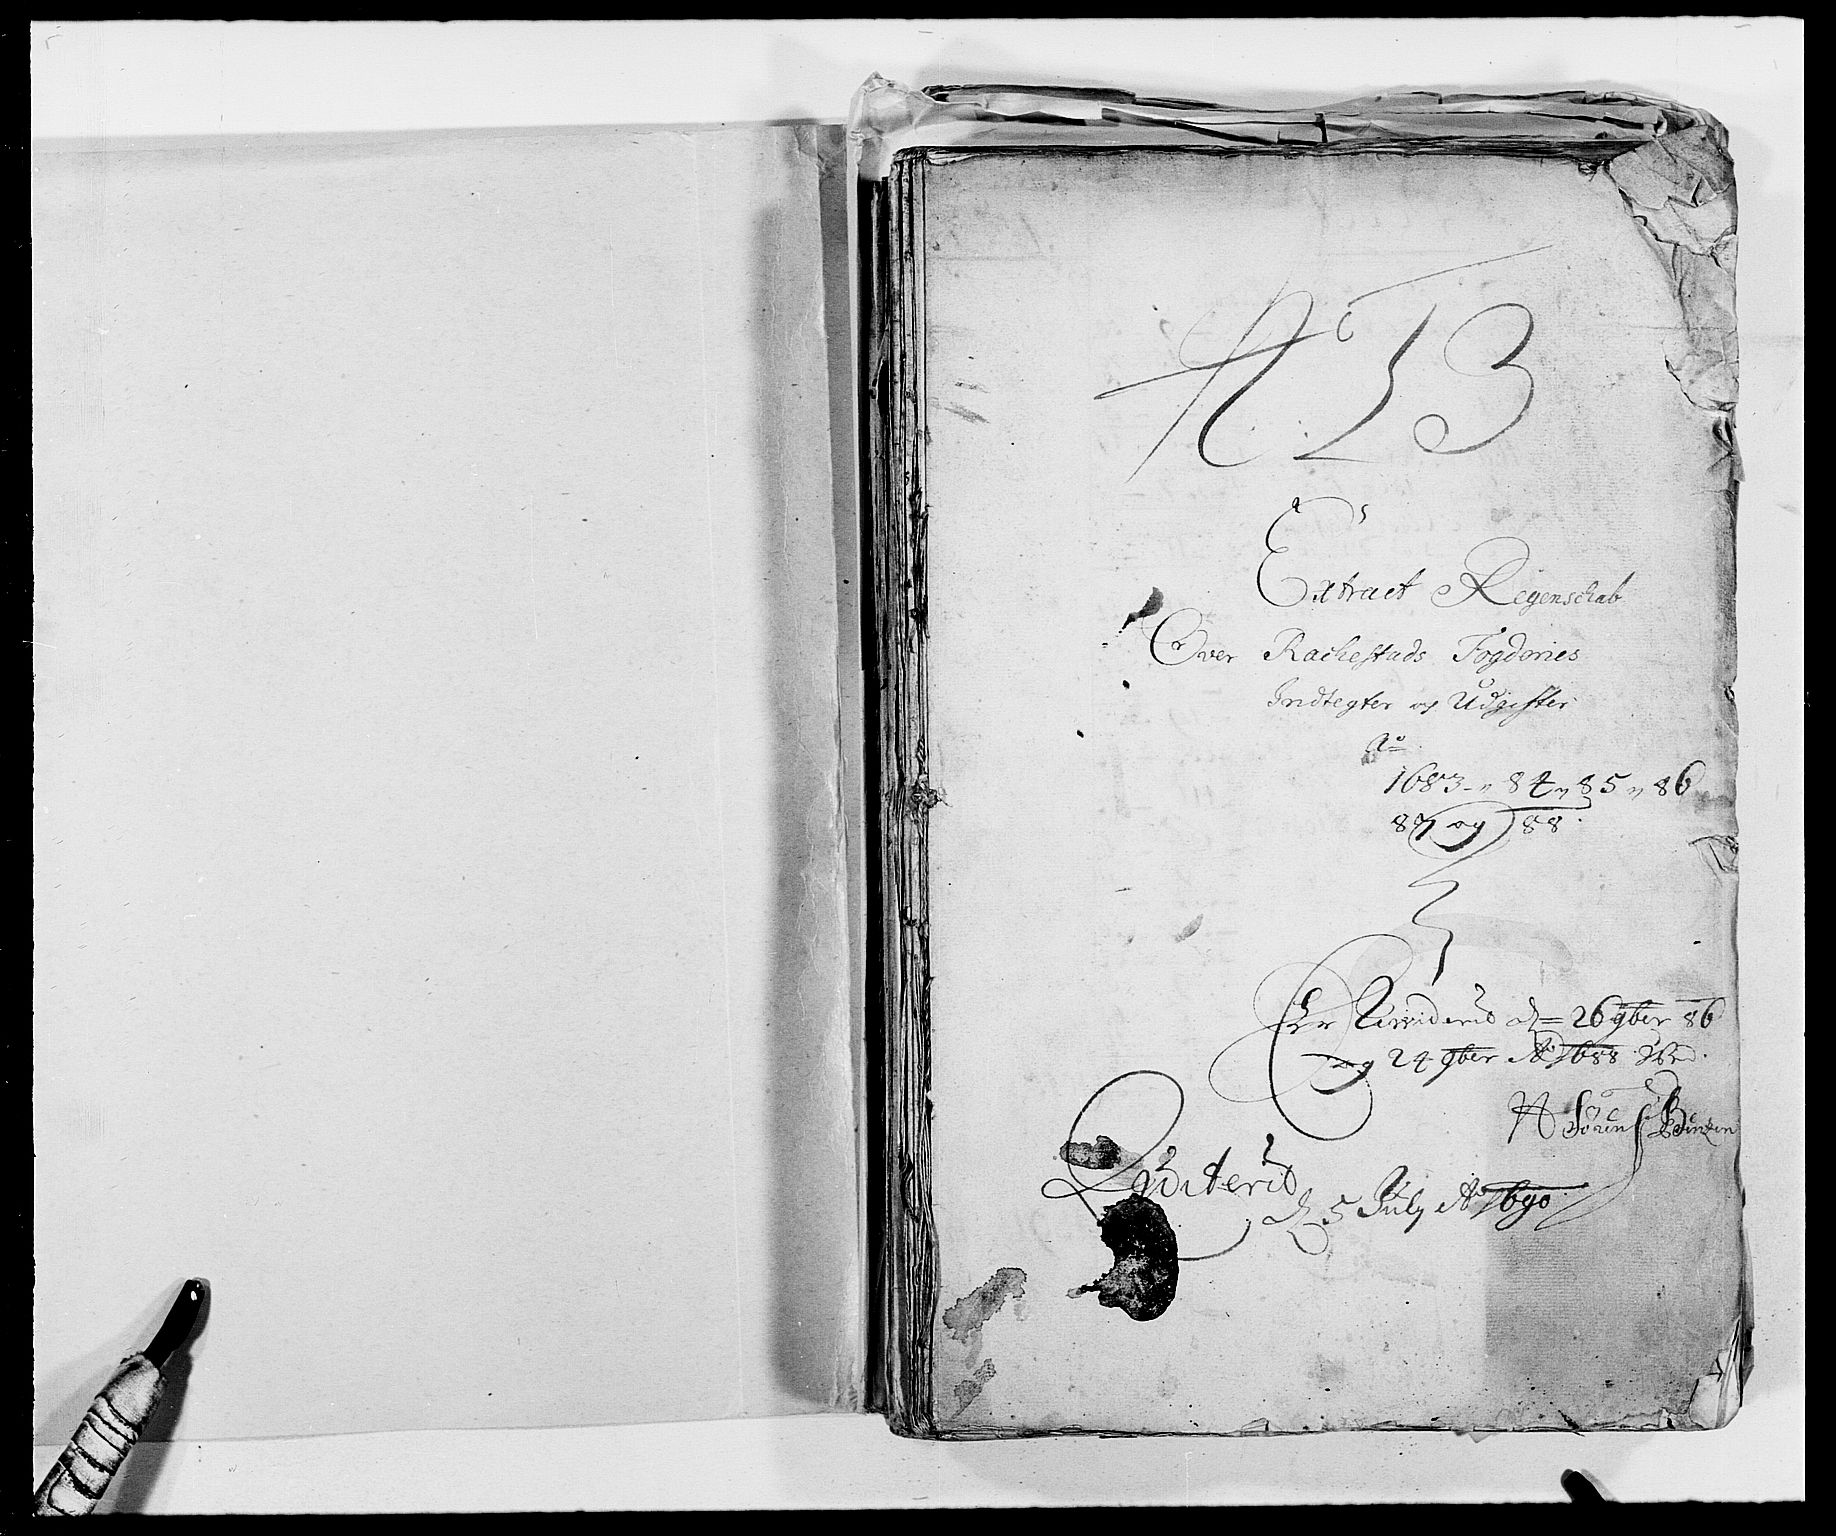 N 13
Extract Regenschab
Over Rachestads Fogdories
Indtegter og Udgifter
Aō
1683 - 84 - 85 - 86
87 og 88
Er Revideret d= 26 9ber 86
og 24 9ber Ao 1688
Sören
Qviterit
d 5 July Ao 1690